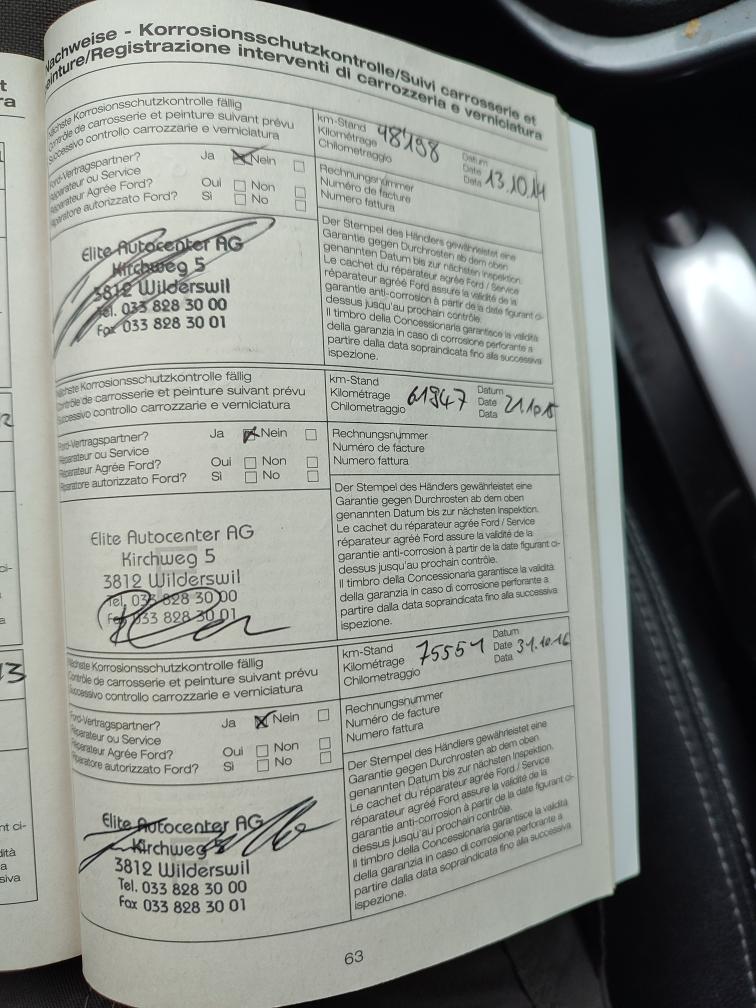 Nachweise - Korrosionsschutzkontrolle/Suivi carrosserie et
peinture/Registrazione interventi di carrozzeria e verniciatura
Nächste Korrosionsschutzkontrolle fällig
Contrôle de carrosserie et peinture suivant prévu
Successivo controllo carrozzarie e verniciatura
km-Stand
Kilométrage
Chilometraggio
48198
Datum
Date
Data
13.10.14
Ford-Vertragspartner? Ja Nein
Réparateur ou Service
Réparateur Agrée Ford? Oui Non
Riparatore autorizzato Ford? Sì No
Rechnungsnummer
Numéro de facture
Numero fattura
Elite Autocenter AG
Kirchweg 5
3812 Wilderswil
Tel. 033 828 30 00
Fax 033 828 30 01
Der Stempel des Händlers gewährleistet eine
Garantie gegen Durchrosten ab dem oben
genannten Datum bis zur nächsten Inspektion.
Le cachet du réparateur agrée Ford / Service
réparateur agréé Ford assure la validité de la
garantie anti-corrosion à partir de la date figurant ci-
dessus jusqu'au prochain contrôle.
Il timbro della Concessionaria garantisce la validità
della garanzia in caso di corrosione perforante a
partire dalla data sopraindicata fino alla successiva
ispezione.
Nächste Korrosionsschutzkontrolle fällig
Contrôle de carrosserie et peinture suivant prévu
Successivo controllo carrozzarie e verniciatura
km-Stand
Kilométrage
Chilometraggio
61947
Datum
Date
Data
21.10.15
Ford-Vertragspartner? Ja Nein
Réparateur ou Service
Réparateur Agrée Ford? Oui Non
Riparatore autorizzato Ford? Sì No
Rechnungsnummer
Numéro de facture
Numero fattura
Elite Autocenter AG
Kirchweg 5
3812 Wilderswil
Tel. 033 828 30 00
Fax 033 828 30 01
Der Stempel des Händlers gewährleistet eine
Garantie gegen Durchrosten ab dem oben
genannten Datum bis zur nächsten Inspektion.
Le cachet du réparateur agrée Ford / Service
réparateur agréé Ford assure la validité de la
garantie anti-corrosion à partir de la date figurant ci-
dessus jusqu'au prochain contrôle.
Il timbro della Concessionaria garantisce la validità
della garanzia in caso di corrosione perforante a
partire dalla data sopraindicata fino alla successiva
ispezione.
Nächste Korrosionsschutzkontrolle fällig
Contrôle de carrosserie et peinture suivant prévu
Successivo controllo carrozzarie e verniciatura
km-Stand
Kilométrage
Chilometraggio
75551
Datum
Date
Data
31.10.16
Ford-Vertragspartner? Ja Nein
Réparateur ou Service
Réparateur Agrée Ford? Oui Non
Riparatore autorizzato Ford? Sì No
Rechnungsnummer
Numéro de facture
Numero fattura
Elite Autocenter AG
Kirchweg 5
3812 Wilderswil
Tel. 033 828 30 00
Fax 033 828 30 01
Der Stempel des Händlers gewährleistet eine
Garantie gegen Durchrosten ab dem oben
genannten Datum bis zur nächsten Inspektion.
Le cachet du réparateur agrée Ford / Service
réparateur agréé Ford assure la validité de la
garantie anti-corrosion à partir de la date figurant ci-
dessus jusqu'au prochain contrôle.
Il timbro della Concessionaria garantisce la validità
della garanzia in caso di corrosione perforante a
partire dalla data sopraindicata fino alla successiva
ispezione.
63